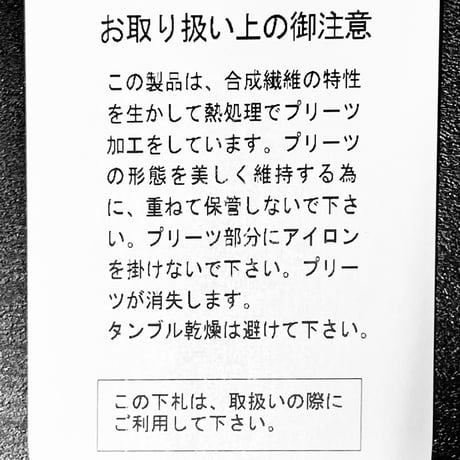 お取り扱い上の御注意
この製品は、合成繊維の特性
を生かして熱処理でプリーツ
加工をしています。プリーツ
の形態を美しく維持する為
に、重ねて保管しないで下さ
い。プリーツ部分にアイロン
を掛けないで下さい。プリー
ツが消失します。
タンブル乾燥は避けて下さい。
この下札は、取扱いの際に
ご利用して下さい。